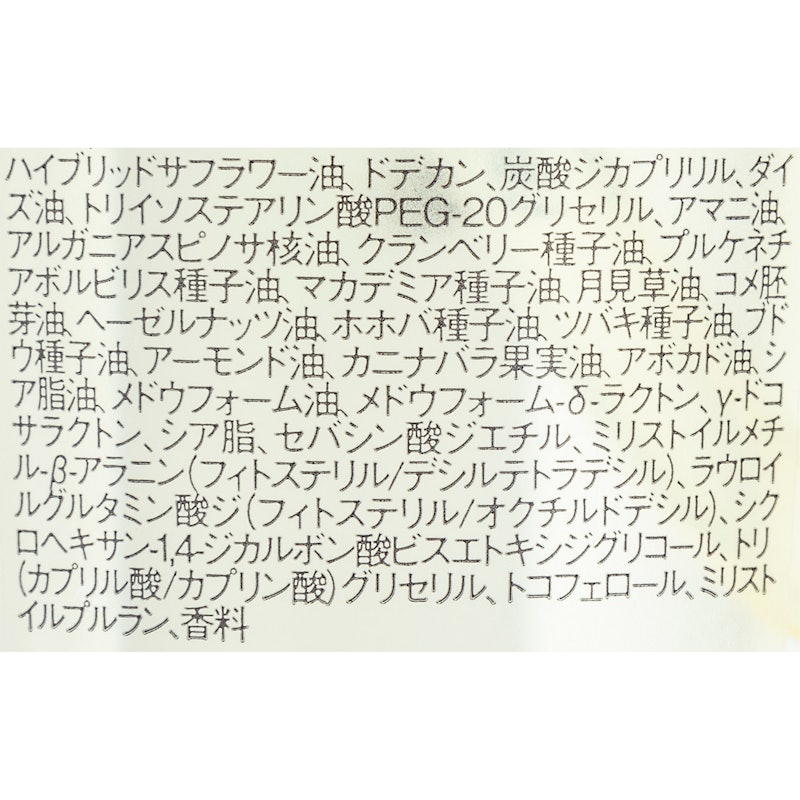 ハイブリッドサフラワー油、ドデカン、炭酸ジカプリリル、ダイ
ズ油、トリイソステアリン酸PEG-20グリセリル、アマニ油、
アルガニアスピノサ核油、クランベリー種子油、プルケネチ
アボルビリス種子油、マカデミア種子油、月見草油、コメ胚
芽油、ヘーゼルナッツ油、ホホバ種子油、ツバキ種子油、ブド
ウ種子油、アーモンド油、カニナバラ果実油、アボカド油、シ
ア脂油、メドウフォーム油、メドウフォーム-δ-ラクトン、γ-ドコ
サラクトン、シア脂、セバシン酸ジエチル、ミリストイルメチ
ル-β-アラニン(フィトステリル/デシルテトラデシル)、ラウロイ
ルグルタミン酸ジ(フィトステリル/オクチルドデシル)、シク
ロヘキサン-1,4-ジカルボン酸ビスエトキシジグリコール、トリ
(カプリル酸/カプリン酸)グリセリル、トコフェロール、ミリスト
イルプルラン、香料